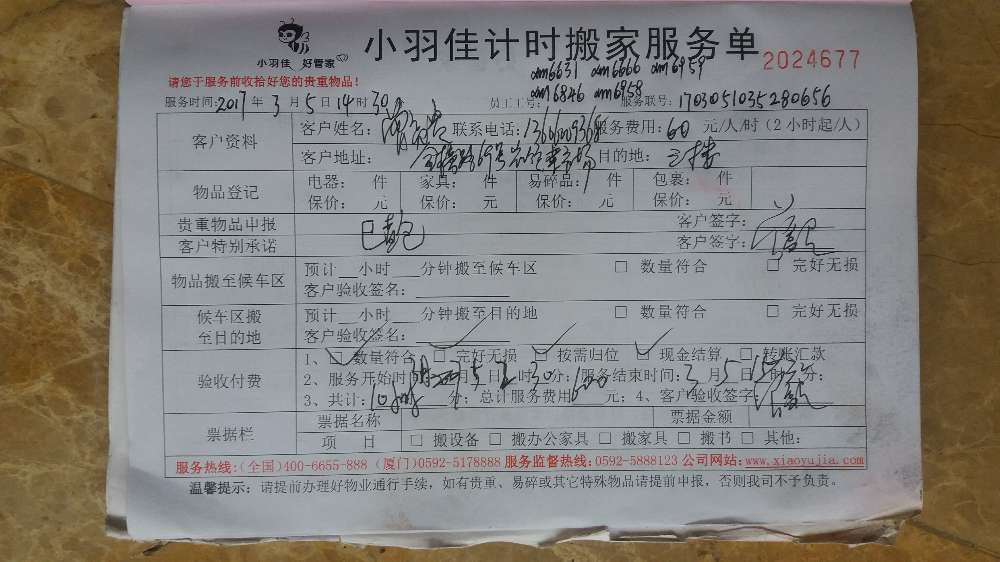 小羽佳 好管家
小羽佳计时搬家服务单
2024677
请您于服务前收拾好您的贵重物品!
xm6631 xm6666 xm6959
xm6846 xm6958
服务时间:2017年3月5日14时30分 员工工号: 服务联号:1703051035280656
客户资料
客户姓名: 联系电话: 服务费用:60元/人/时(2小时起/人)
客户地址: 目的地:
物品登记
电器: 件 家具: 件 易碎品: 件 包裹: 件
保价: 元 保价: 元 保价: 元 保价: 元
贵重物品申报 客户签字:
客户特别承诺 客户签字:
物品搬至候车区
预计__小时___分钟搬至候车区 □ 数量符合 □ 完好无损
客户验收签名:
候车区搬至目的地
预计__小时___分钟搬至目的地 □ 数量符合 □ 完好无损
客户验收签名:
验收付费
1、□ 数量符合 □ 完好无损 □ 按需归位 □ 现金结算 □ 转账汇款
2、服务开始时 分;服务结束时间:3月5日 时 分;
3、共计: 分;总计服务费用600元;4、客户验收签字
票据栏
票据名称 票据金额
项 目 □ 搬设备 □ 搬办公家具 □ 搬家具 □ 搬书 □ 其他:
服务热线:(全国)400-6655-888 (厦门)0592-5178888 服务监督热线:0592-5888123 公司网站:www.xiaoyujia.com
温馨提示:请提前办理好物业通行手续,如有贵重、易碎或其它特殊物品请提前申报,否则我司不予负责。